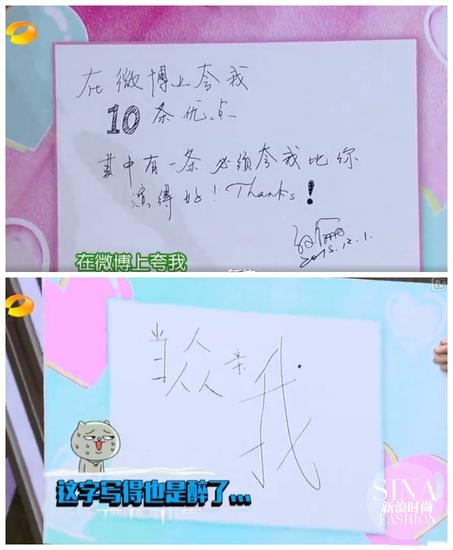 在微博上夸我
10条优点
其中有一条必须夸我比你
演得好! Thanks!
2015.12.1.
在微博上夸我
当众亲我
这字写得也是醉了...
SINA
新浪时尚
FASHION